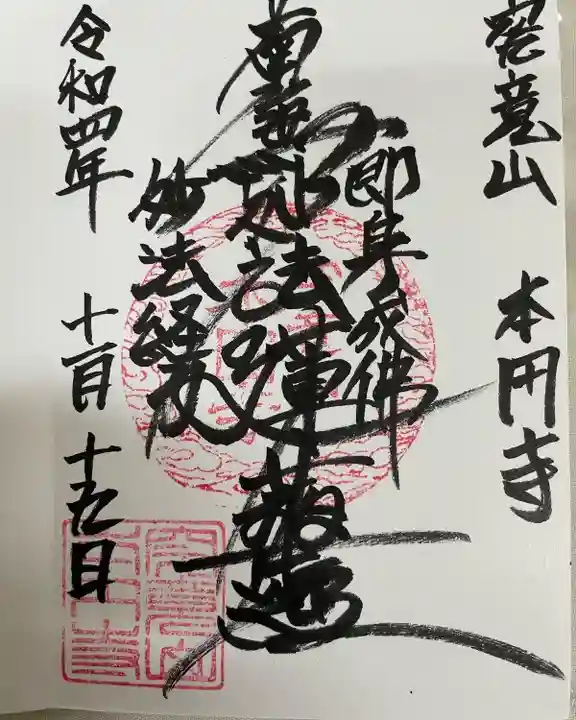 山 本円寺
即身成佛
南無妙法蓮華経
妙法経力
令和四年 十一月 十五日